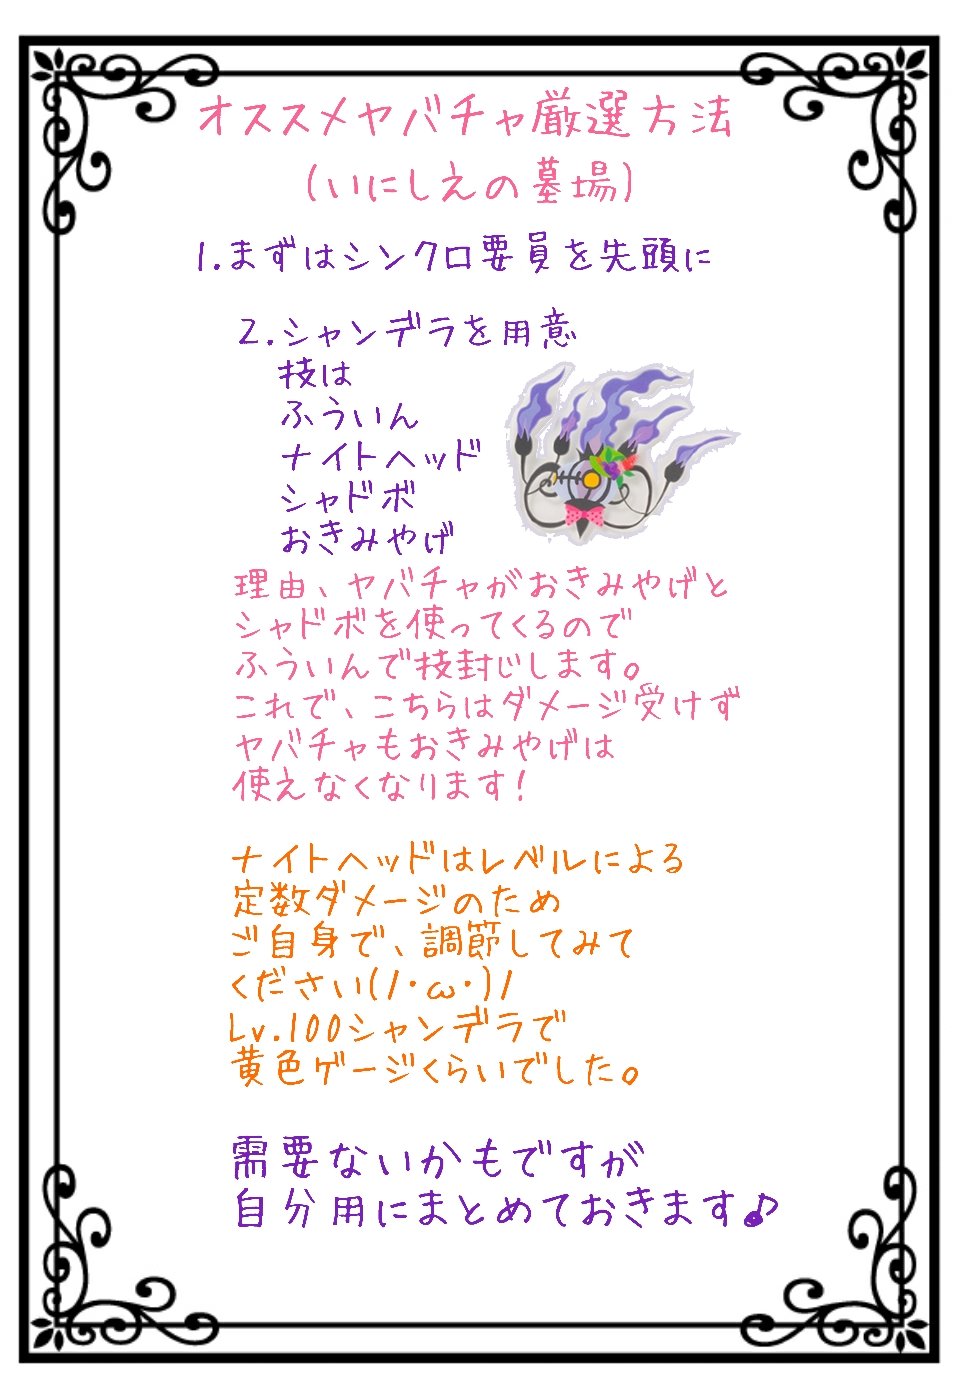 オススメヤバチャ厳選方法
(いにしえの墓場)
1.まずはシンクロ要員を先頭に
2.シャンデラを用意
技は
ふういん
ナイトヘッド
シャドボ
おきみやげ
理由、ヤバチャがおきみやげと
シャドボを使ってくるので
ふういんで技封じします。
これで、こちらはダメージ受けず
ヤバチャもおきみやげは
使えなくなります!
ナイトヘッドはレベルによる
定数ダメージのため
ご自身で、調節してみて
ください(/・ω・)/
Lv.100シャンデラで
黄色ゲージくらいでした。
需要ないかもですが
自分用にまとめておきます♪